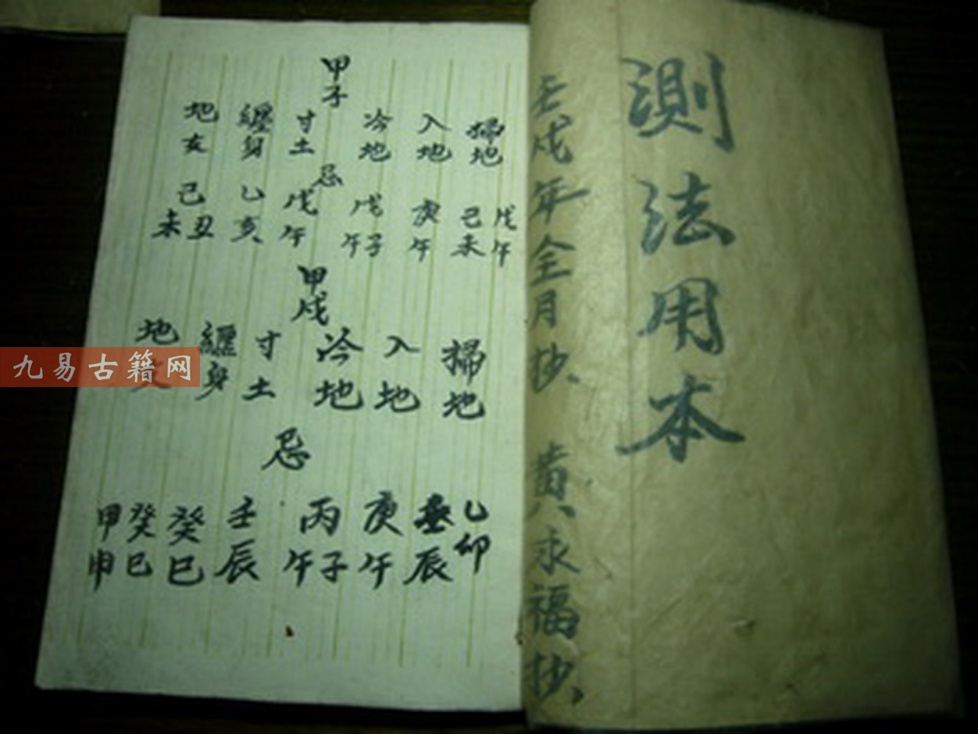 測法用本
壬戌年全月抄、黄永福抄、
甲子
掃地 入地 冷地 寸土 纏身 地支
忌
戊午 己未 庚午 戊子 午 戊午 乙亥 己丑 未
甲戌
掃地 入地 冷地 寸土 纏身 地
忌
乙卯 辰 庚午 丙子 午 壬辰 癸巳 癸巳 甲申
九易古籍网